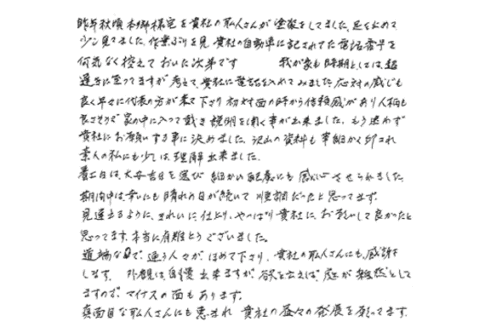 昨年秋頃本郷様宅を貴社の職人さんが塗装をしてました、足を止めて
少し見てました、作業ぶりを見、貴社の自動車に記されてた電話番号を
何気なく控えておいた次第です 我が家も時期としては、超
過ぎに至ってますが考えて、貴社に電話を入れてみました。応対の感じも
良く早々に代表の方が来て下さり初対面の時から信頼感があり人柄も
良さそうで家の中に入って戴き説明を聞く事が出来ました。もう迷わず
貴社にお願いする事に決めました。沢山の資料も事細かく印され
素人の私にも少しは理解出来ました。
着工日は、大安吉日を選び細かい配慮にも感心させられました。
期間中は幸いにも晴れの日が続いて順調だったと思ってます。
見違えるように、きれいに仕上り、やっぱり貴社に、お願いして良かったと
思ってます、本当に有難とうございました。
道端なので、通る人々が、ほめて下さり、貴社の職人さんにも感謝
します。 外観は自慢出来ますが、欲を云えば、庭が雑然として
ますので、マイナスの面もあります。
真面目な職人さんにも恵まれ 貴社の益々の発展を願ってます。